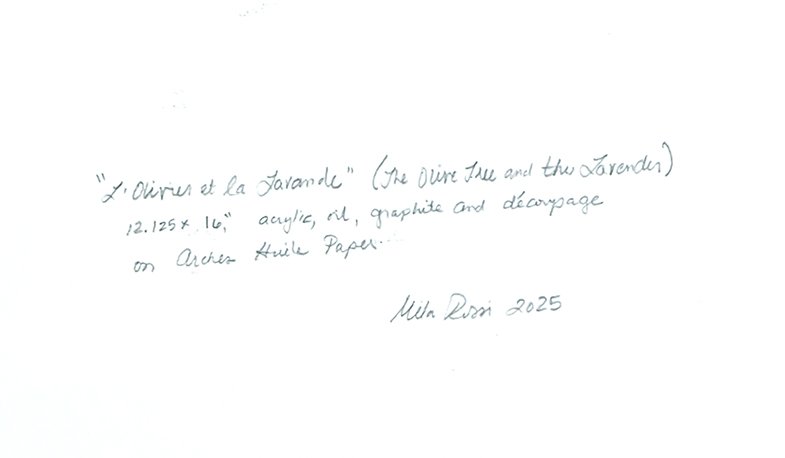 "L'Olivier et la Lavande" (The Olive Tree and the Lavender)
12.125 x 16", acrylic, oil, graphite and découpage
on Arches Huile Paper
Mila Rossi 2025